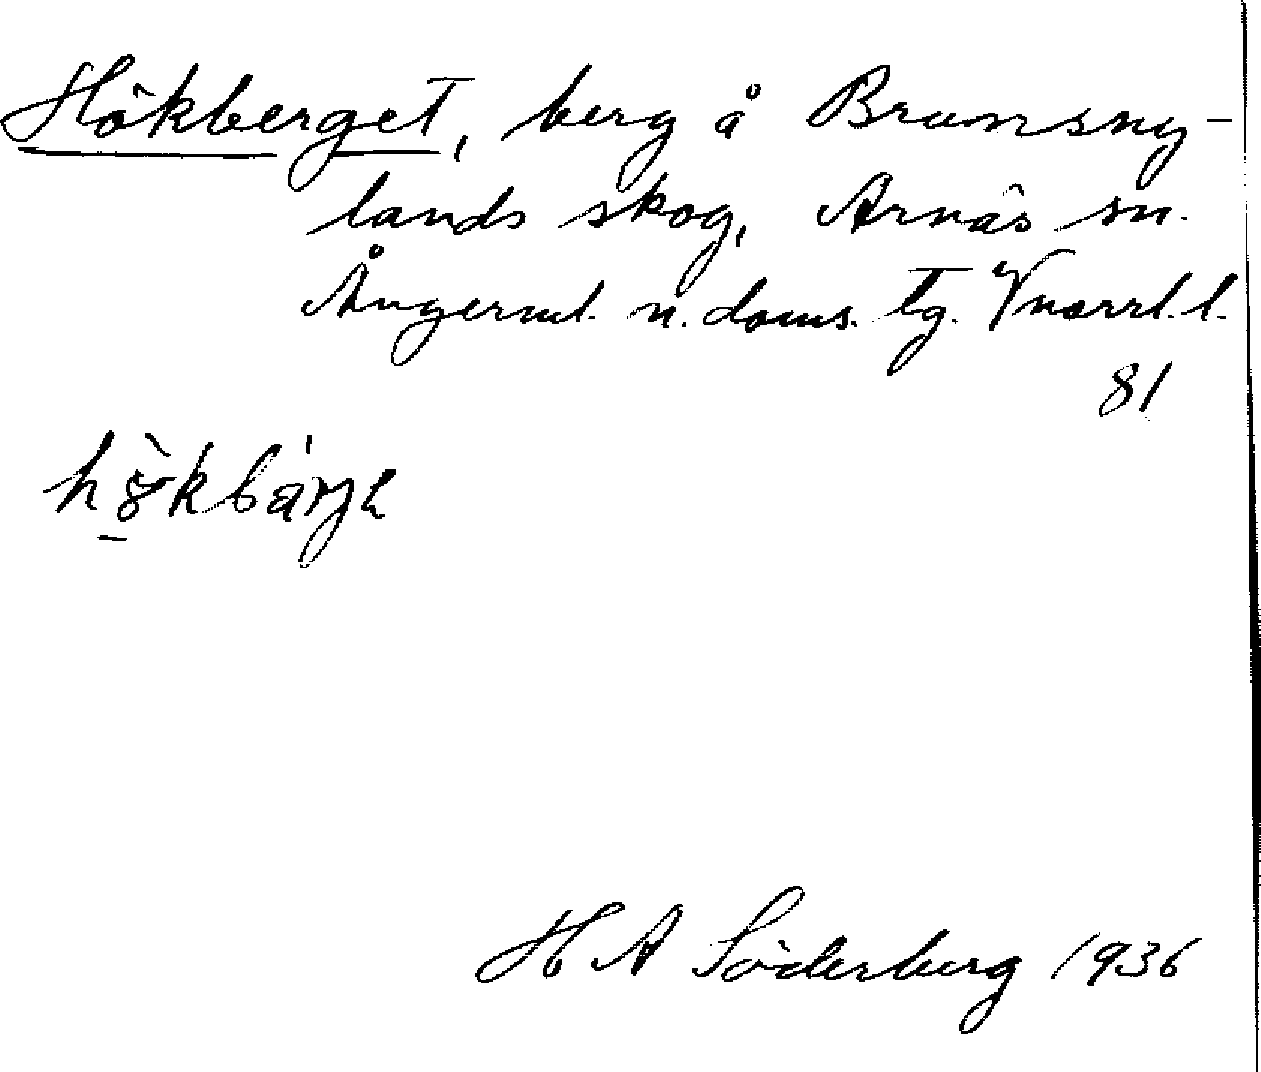 Hökberget, berg å Bromsny-
lands skog, Arnäs sn.
Ångerml. n. doms. tg. Vnorrl. l.
81
hö̀kbár̨jɩ
H A Söderberg 1936